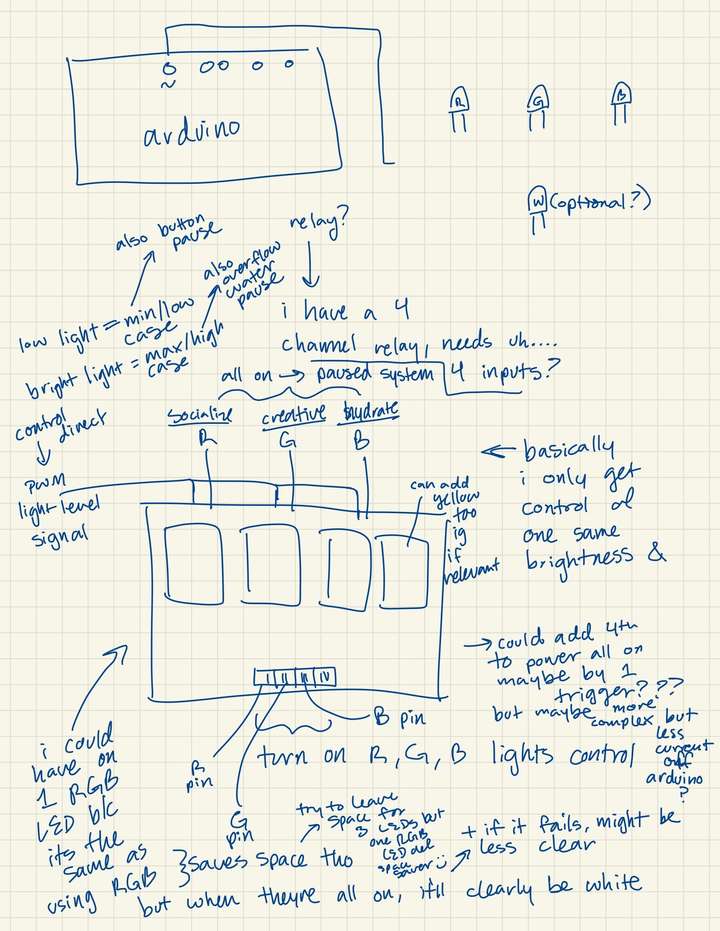 ~
arduino
R
G
B
W (optional?)
also button
pause
relay?
also
overflow
water
pause
low light = min/low
case
bright light = max/high
case
i have a 4
channel relay, needs uh....
4 inputs?
all on → paused system
control
direct
PWM
light level
signal
socialize
creative
hydrate
R
G
B
can add
yellow
too
ig
if
relevant
← basically
i only get
control of
one same
brightness &
→ could add 4th
to power all on
maybe by 1
trigger???
but maybe more
complex but
less
current
off
arduino
?
I II III IV
R
pin
G
pin
B pin
turn on R, G, B lights control
i could
have on
1 RGB
LED b/c
its the
same as
using RGB
} saves space tho
try to leave
space for
3 LEDs but
one RGB
LED def
space
saver :)
+ if it fails, might be
less clear
but when theyre all on, it'll clearly be white